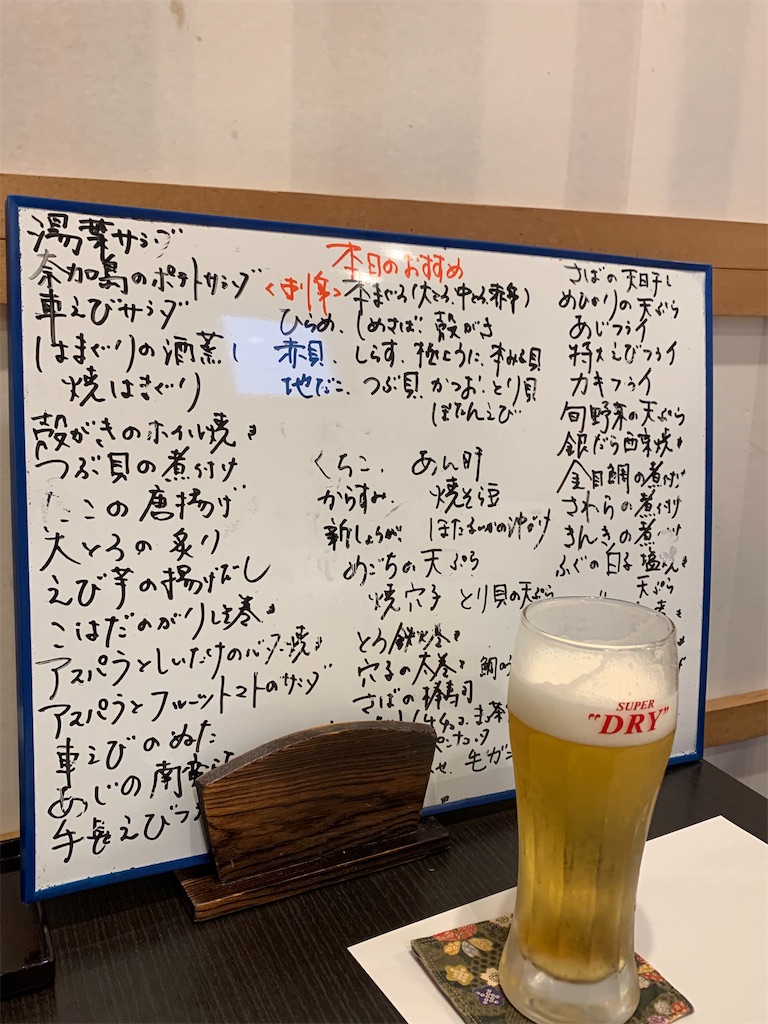 湯葉サラダ
奈加島のポテトサラダ
車えびサラダ
はまぐりの酒蒸し
焼はまぐり
殻がきのホイル焼き
つぶ貝の煮付け
たこの唐揚げ
大とろの炙り
えび芋の揚げだし
こはだのがり巻
アスパラとしいたけのバター焼き
アスパラとフルーツトマトのサラダ
車えびのぬた
あじの南蛮
手長えび
本日のおすすめ
本まぐろ(大とろ、中とろ、赤身)
ひらめ、しめさば、殻がき
赤貝、しらす、本みる貝
地だこ、つぶ貝、かつお、とり貝
ぼたんえび
くちこ、あん肝
からすみ、焼そら豆
新しょうが、ほたるいかの沖づけ
めごちの天ぷら
焼穴子 とり貝の天ぷら
とろ鉄火巻き
穴子の太巻き 鯛の
さばの棒寿司
毛ガニ
さばの文化干し
めひかりの天ぷら
あじフライ
特大えびフライ
カキフライ
旬野菜の天ぷら
銀だら西京焼き
金目鯛の煮付け
さわらの煮付け
きんきの煮付け
ふぐの白子 塩焼き
天ぷら
SUPER
"DRY"